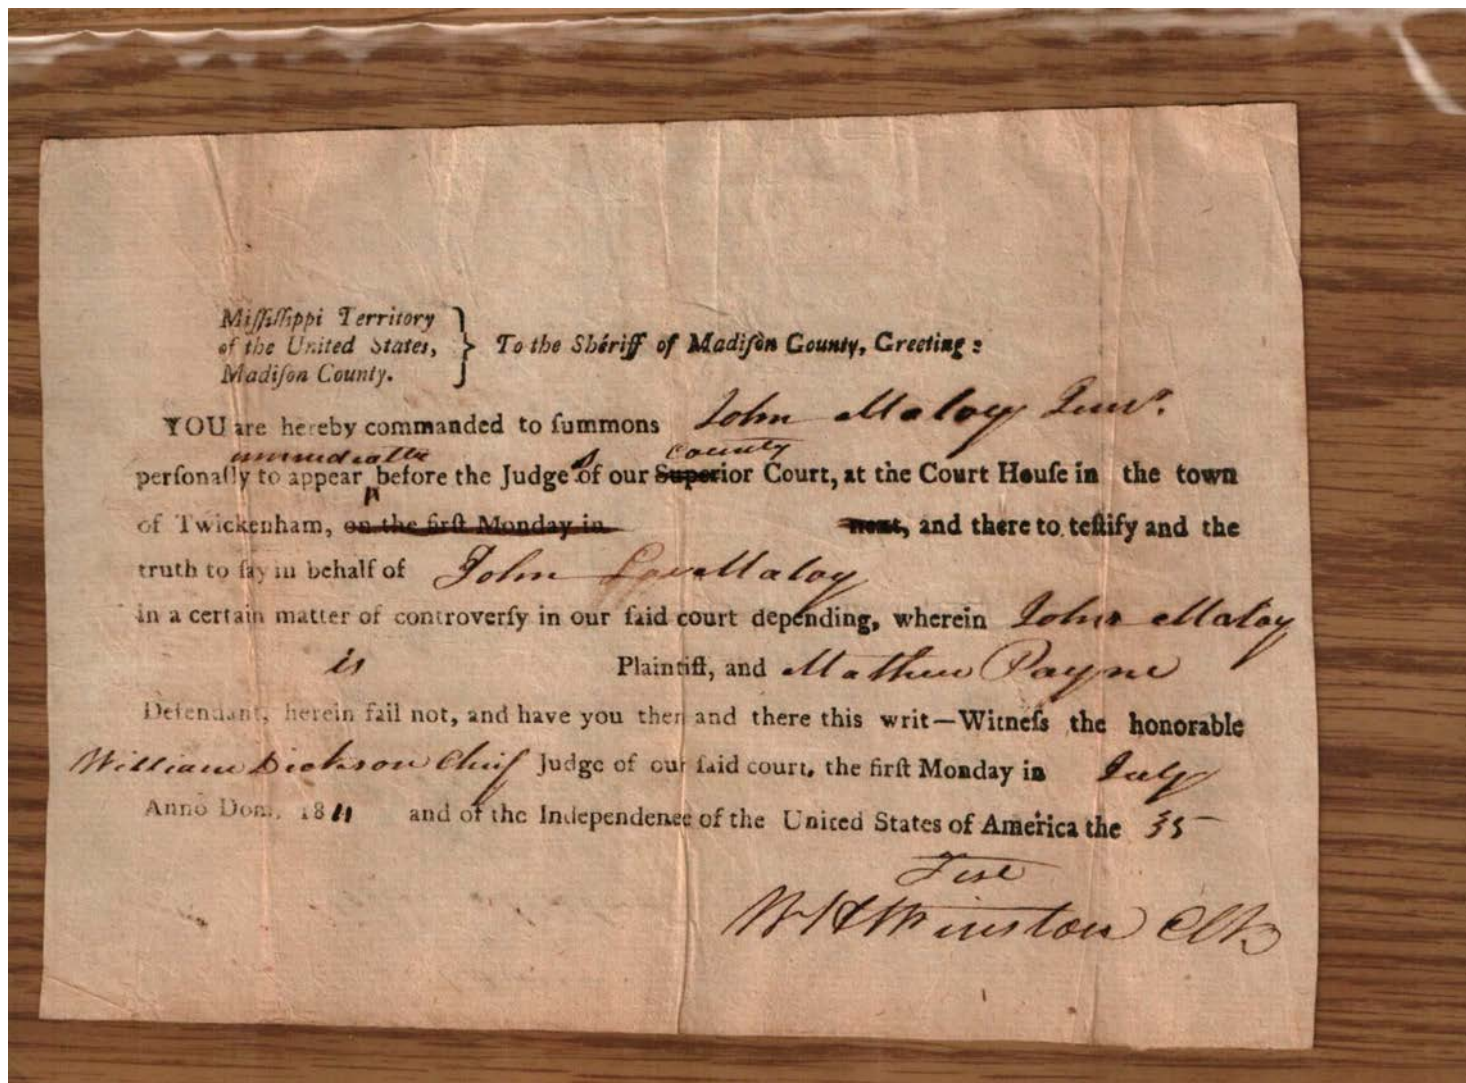 Miſſiſſippi Territory
of the United States,
Madiſon County.
} To the Sheriff of Madiſon County, Greeting:
YOU are hereby commanded to ſummons John Maloy Junr.
immediatle county
perſonally to appear ^ before the Judges of our Superior Court, at the Court Houſe in the town
of Twickenham, on the firſt Monday in next, and there to teſtify and the
truth to ſay in behalf of John Maloy
in a certain matter of controverſy in our ſaid court depending, wherein John Maloy
is Plaintiff, and Mathew Payne
Defendant, herein fail not, and have you then and there this writ—Witneſs the honorable
William Dickson Chief Judge of our ſaid court, the firſt Monday in July
Anno Dom. 1811 and of the Independence of the United States of America the 35
Test
W H Winston Clk